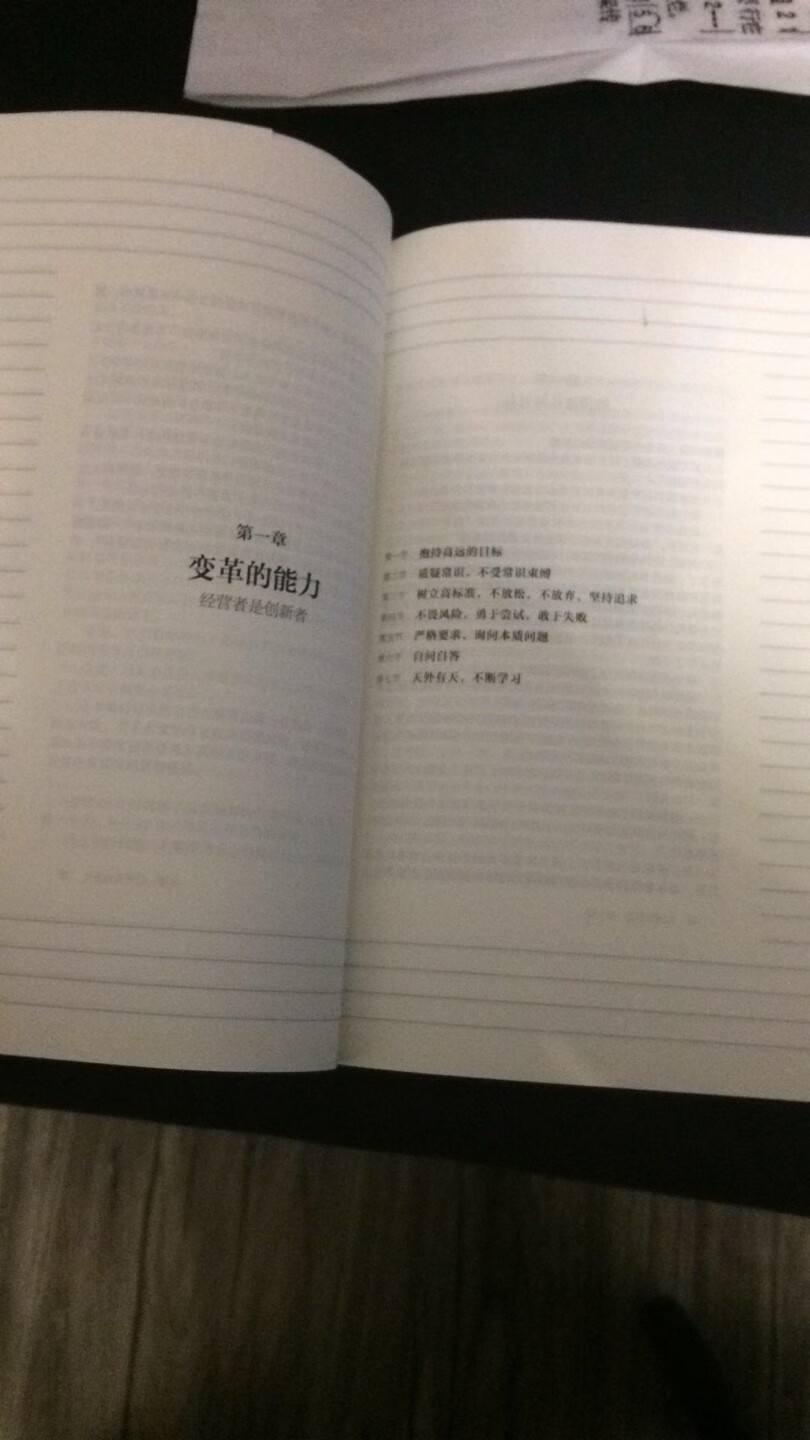 第一章
变革的能力
经营者是创新者
第一节 抱持高远的目标
第二节 质疑常识，不受常识束缚
第三节 树立高标准，不放松，不放弃，坚持追求
第四节 不畏风险，勇于尝试，敢于失败
第五节 严格要求，询问本质问题
第六节 自问自答
第七节 天外有天，不断学习